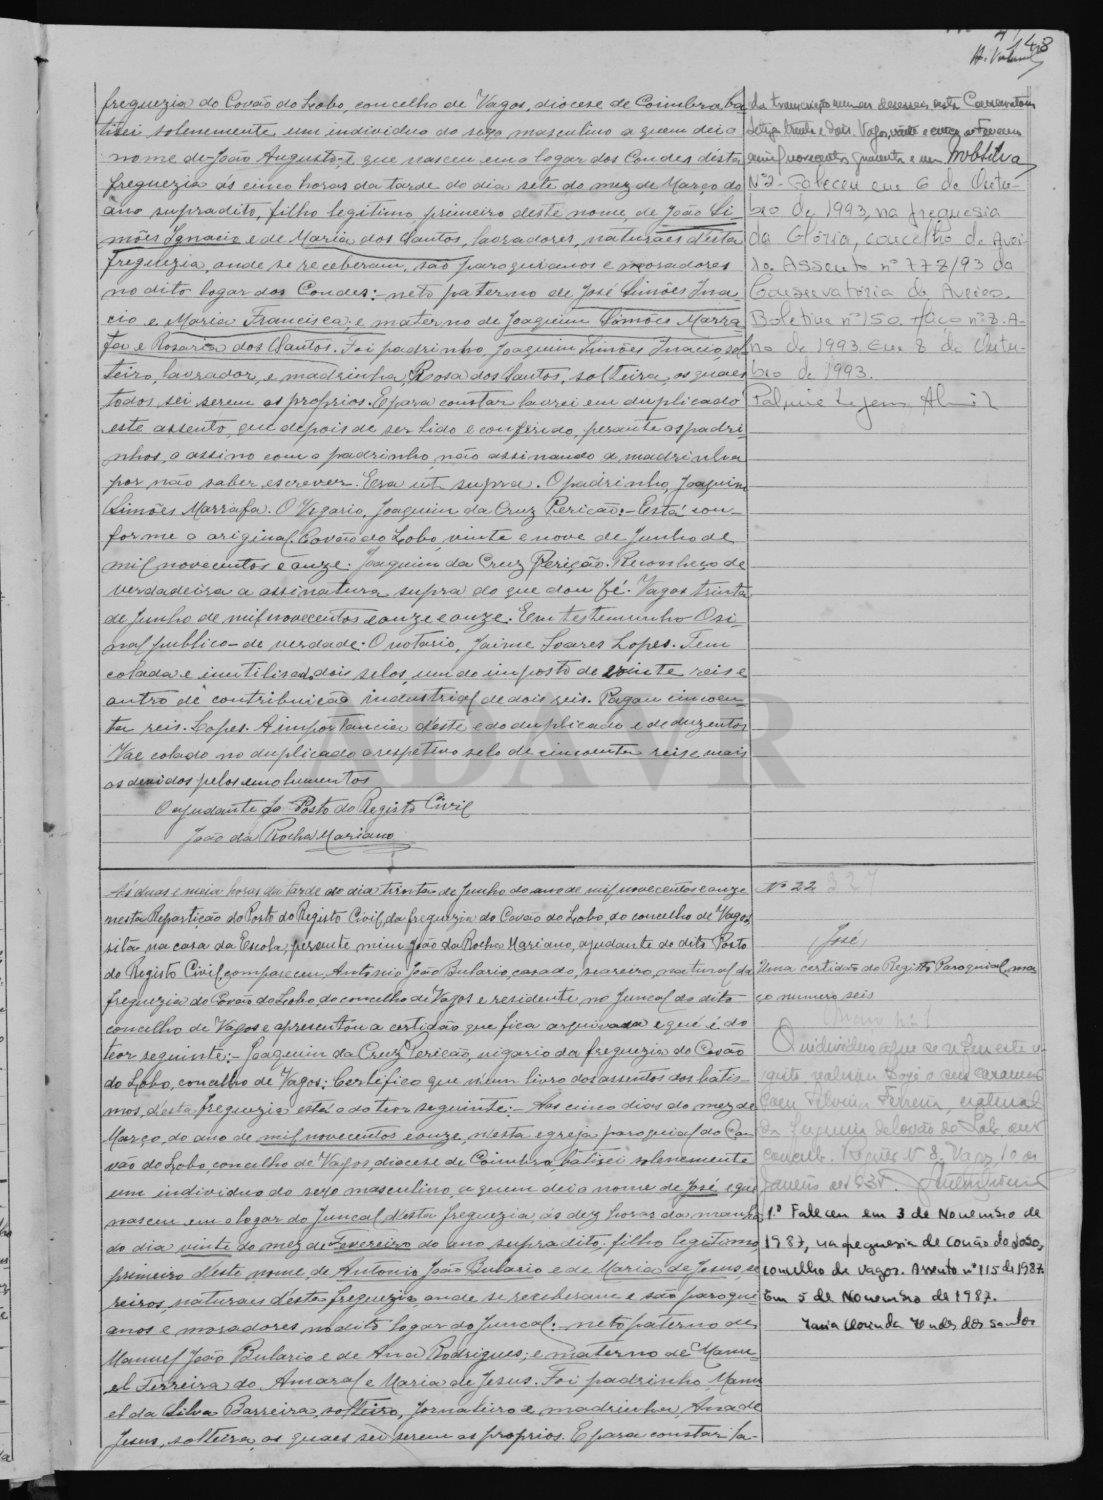 148
freguezia do Covão do Lobo, concelho de Vagos, diocese de Coimbra, ba
tisei solenemente um individuo do sexo masculino a quem dei o
nome de João Augusto, e que nasceu em o logar dos Condes, désta
freguezia ás cinco horas da tarde do dia sete do mez de Março do
ano supradito, filho legitimo, primeiro deste nome, de João Si-
mões Ignacio e de Maria dos Santos, lavradores, naturaes désta
freguezia, onde se receberam, são paroquianos e moradores
no dito logar dos Condes: neto paterno de José Simões Ina-
cio e Maria Francisca; e materno de Joaquim Simões Marra-
fa e Rosaria dos Santos. Foi padrinho, Joaquim Simões Inacio, sol-
teiro, lavrador, e madrinha, Rosa dos Santos, solteira, os quaes
todos sei serem os proprios. E para constar lavrei em duplicado
este assento, que depois de ser lido e conferido, perante os padri-
nhos, o assino com o padrinho, não assinando a madrinha
por não saber escrever. Era ut supra. O padrinho, Joaquim
Simões Marrafa. O Vigario, Joaquim da Cruz Pericão:- Está con-
forme o original. Covão do Lobo, vinte e nove de Junho de
mil novecentos e onze. Joaquim da Cruz Pericão. Reconheço de
verdadeira a assinatura supra do que dou fé. Vagos trinta
de Junho de mil novecentos e onze. Em testemunho O si-
nal publico de verdade. O notario, Jaime Soares Lopes. Tem
colada e inutilisados dois selos, um do imposto de vinte reis e
outro de contribuição industrial de dois reis. Pagou cincoen-
ta reis. Lopes. A importancia déste e do duplicado é de duzentos
Vae colado no duplicado o respetivo selo de cincoenta reis e mais
os devidos pelos emolumentos
O ajudante do Posto do Registo Civil
João da Rocha Mariano
N.º 2 - Faleceu em 6 de Outu-
bro de 1993, na freguesia
da Glória, concelho de Avei-
ro. Assento nº 778/93 da
Conservatória de Aveiro.
Boletim nº 150. Maço nº 8. A-
no de 1993. Em 8 de Outu-
bro de 1993.
Ás duas e meia horas da tarde do dia trinta de Junho do ano de mil novecentos e onze
nesta Repartição do Posto do Registo Civil, da freguezia do Covão do Lobo, do concelho de Vagos,
sita na casa da Escola, perante mim João da Rocha Mariano, ajudante do dito Posto
do Registo Civil, compareceu, Antonio João Bulario, casado, seareiro, natural da
freguezia do Covão do Lobo, do concelho de Vagos e residente no Juncal do dito
concelho de Vagos e apresentou a certidão que fica arquivada e que é do
teor seguinte:- Joaquim da Cruz Pericão, vigario da freguezia do Covão
do Lobo, concelho de Vagos: Certifico que n'um livro dos assentos dos batis-
mos, d'esta freguezia está o do teor seguinte:- Aos cinco dias do mez de
Março, do ano de mil novecentos e onze, n'esta egreja paroquial do Co-
vão do Lobo, concelho de Vagos, diocese de Coimbra, batisei solenemente
um individuo do sexo masculino, a quem dei o nome de José, e que
nasceu em o logar do Juncal, d'esta freguezia, ás dez horas da manhã,
do dia vinte do mez de Fevereiro do ano supradito: filho legitimo,
primeiro d'este nome, de Antonio João Bulario e de Maria de Jesus, se
reiros, naturaes d'esta freguezia, onde se receberam e são paroqui-
anos e moradores no dito logar do Juncal: neto paterno de
Manuel João Bulario e de Ana Rodrigues; e materno de Manu-
el Ferreira do Amaral e Maria de Jesus. Foi padrinho, Manu
el da Silva Barreira, solteiro, jornaleiro e madrinha, Ana de
Jesus, solteira, os quaes sei serem os proprios. E para constar la-
Nº 22
José
Uma certidão do Registo Paroquial, ma-
ço numero seis
1.º Faleceu em 3 de Novembro de
1987, na freguesia de Covão do Lobo,
concelho de Vagos. Assento nº 115 de 1987.
Em 5 de Novembro de 1987.
ADAVR